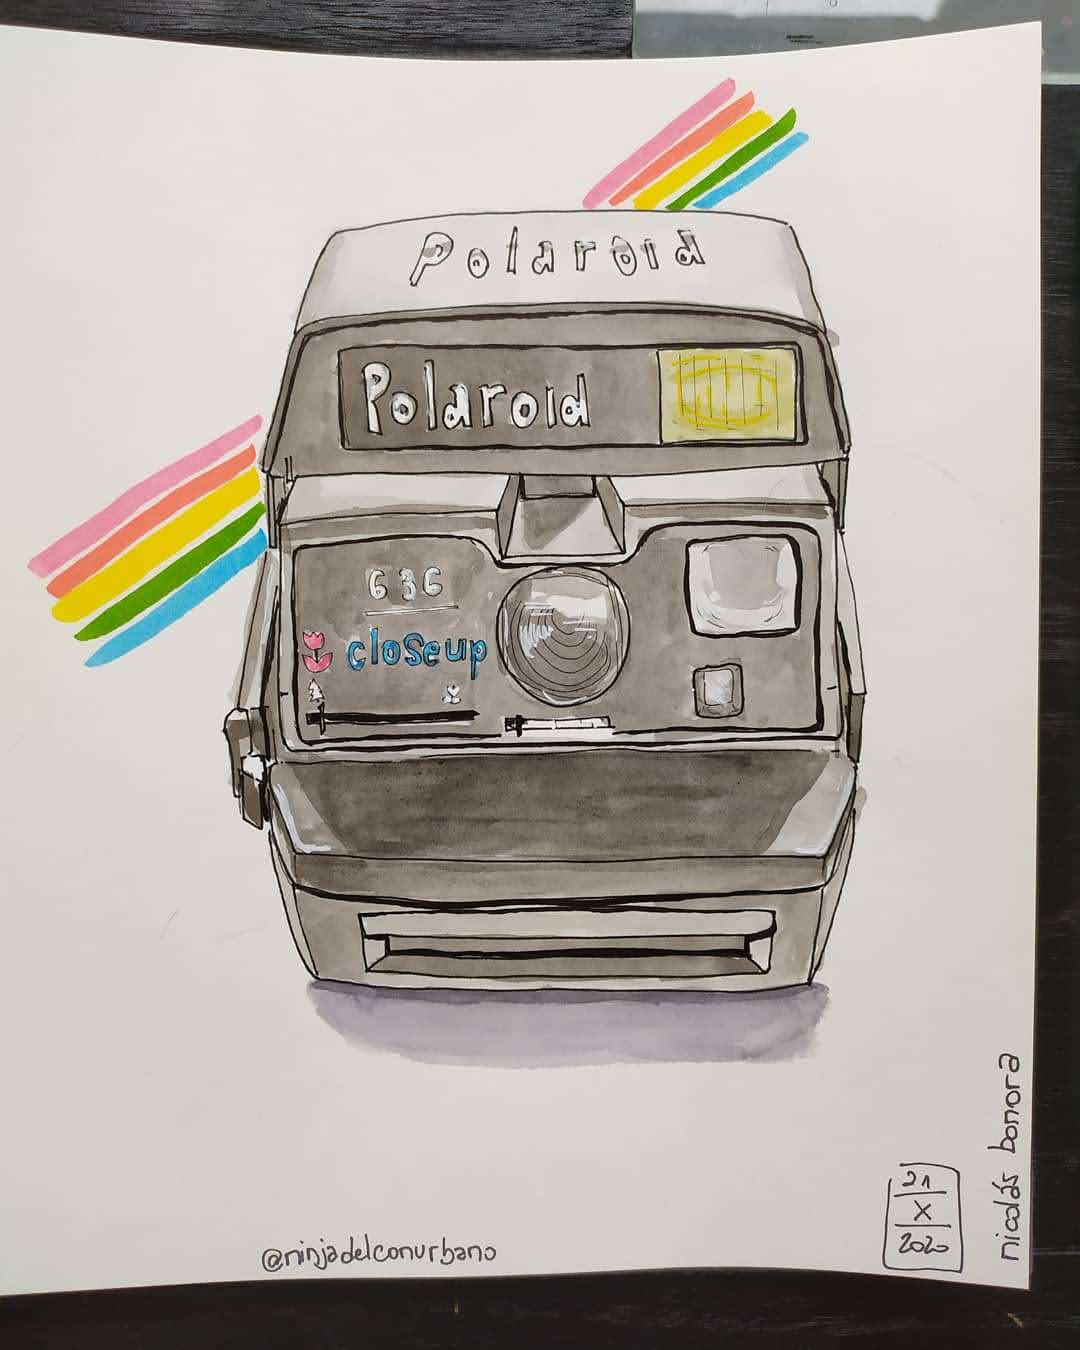 Polaroid
Polaroid
636
closeup
@ninjadelconurbano
21
X
2020
nicolás bonora